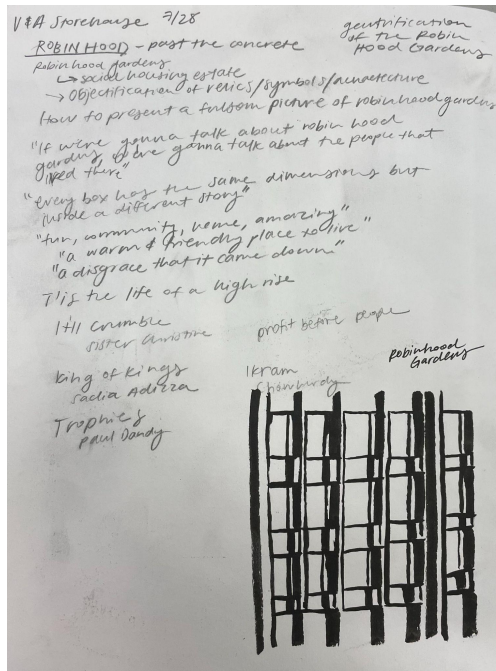 V&A Storehouse 7/28
gentrification
of the Robin
Hood Gardens
ROBIN HOOD - past the concrete
Robinhood gardens
↳ social housing estate
→ Objectification of relics/symbols/architecture
How to present a fulsom picture of robinhood gardens
"If we're gonna talk about robin hood
gardens, we're gonna talk about the people that
lived there"
"every box has the same dimensions but
inside a different story"
"fun, community, home, amazing"
"a warm & friendly place to live"
"a disgrace that it came down"
T'is the life of a high rise
It'll crumble
sister Christine
profit before people
Ikram
Chowhurdy
king of kings
Sadia Adizza
Trophies
Paul Dandy
Robinhood
Gardens